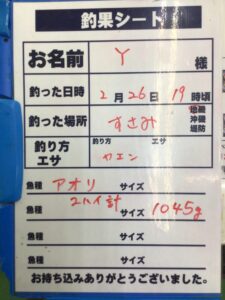 釣果シート
お名前 Y 様
釣った日時 2月26日 19時頃
釣った場所 すさみ 地磯 沖磯 堤防
釣り方 エサ 釣り方 エサ
ウエン
魚種 アオリ サイズ
2ハイ計 1045g
魚種 サイズ
魚種 サイズ
魚種 サイズ
お持ち込みありがとうございました。